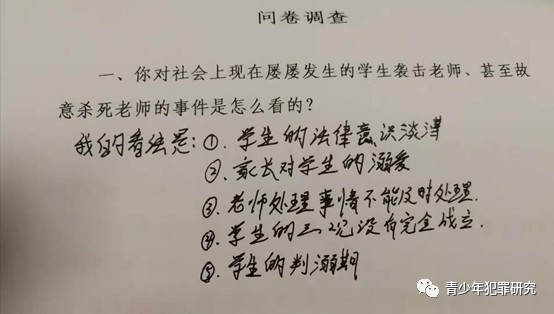 问卷调查
一、你对社会上现在屡屡发生的学生袭击老师、甚至故
意杀死老师的事件是怎么看的?
我的看法是:①.学生的法律意识淡薄
②.家长对学生的溺爱
③.老师处理事情不能及时处理.
④.学生的三观没有完全成立.
⑤.学生的判溺期
青少年犯罪研究